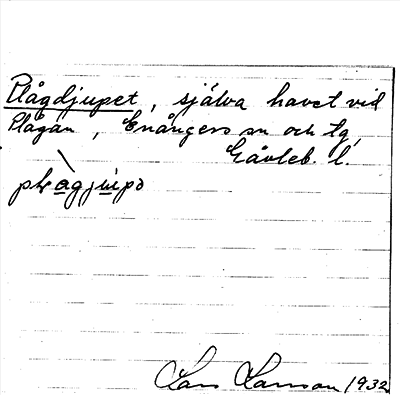 Plågdjupet, själva havet vid
Plågan, Enångers sn och tg,
Gävleb. l.
plàgjupə
Lars Larsson 1932